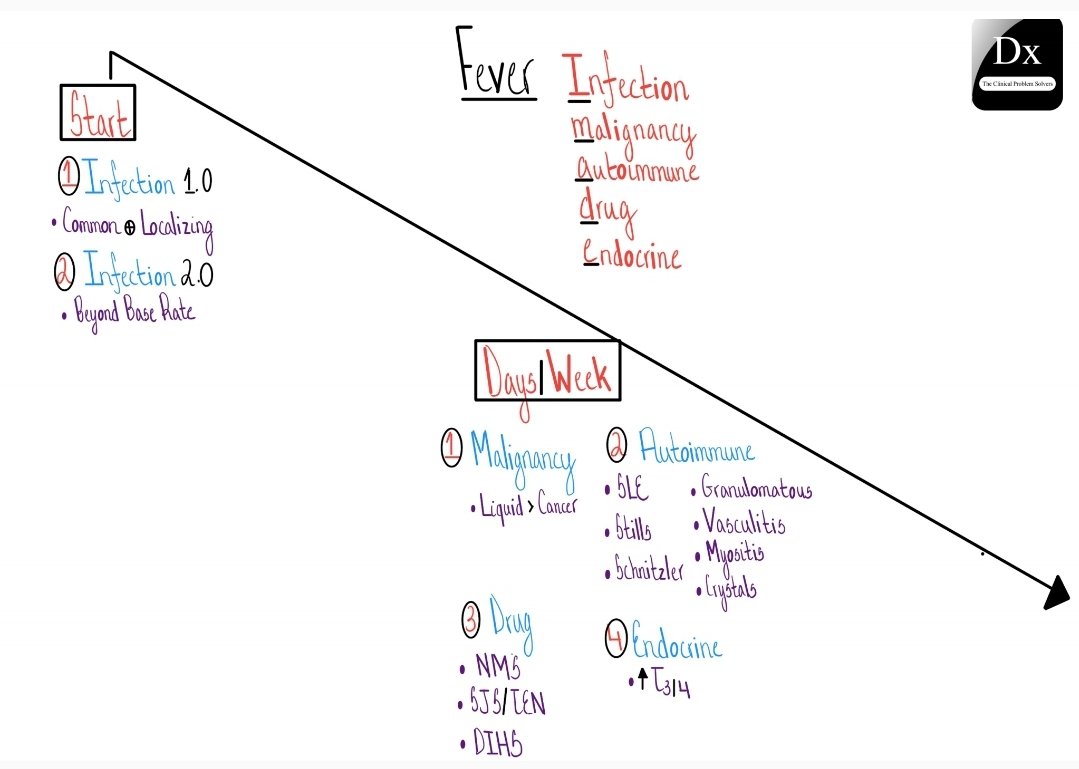 Fever
Infection
malignancy
autoimmune
drug
Endocrine
Dx
The Clinical Problem Solvers
Start
1 Infection 1.0
• Common ⊕ Localizing
2 Infection 2.0
• Beyond Base Rate
Days/Week
1 Malignancy
• Liquid > Cancer
2 Autoimmune
• SLE
• Stills
• Schnitzler
• Granulomatous
• Vasculitis
• Myositis
• Crystals
3 Drug
• NMS
• SJS/TEN
• DIHS
4 Endocrine
• ↑ T3/4